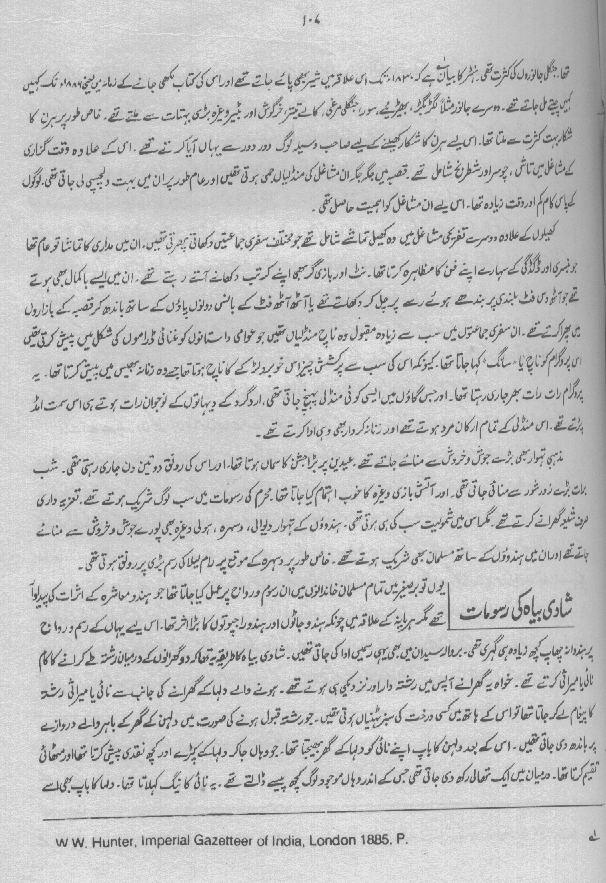 ۱۰۷
تھا۔ جنگلی جانوروں کی کثرت تھی۔ ہنٹر کا بیان ہے کہ ۱۸۳۰ تک اس علاقہ میں شیر بھی پائے جاتے تھے اور اس کی کتاب لکھی جانے کے زمانہ میں یعنی ۱۸۸۶ تک کہیں
کہیں چیتے مل جاتے تھے۔ دوسرے جانور مثلاً لگڑبگڑ، بھیڑیئے، سور، جنگلی مرغی، کالے تیتر، خرگوش اور بٹیر وغیرہ بڑی بہتات سے ملتے تھے۔ خاص طور پر ہرن کا
شکار بہت کثرت سے ملتا تھا۔ اس لیے ہرن کا شکار کھیلنے کے لیے صاحب وسیلہ لوگ دور دور سے یہاں آیا کرتے تھے۔ اس کے علاوہ وقت گذاری
کے مشاغل میں تاش، چوسر اور شطرنج شامل تھے۔ قصبہ میں جگہ جگہ ان مشاغل کی منڈلیاں جمی ہوتی تھیں اور عام طور پر ان میں بہت دلچسپی لی جاتی تھی۔ لوگوں
کے پاس کام کم اور وقت زیادہ تھا۔ اس لیے ان مشاغل کو اہمیت حاصل تھی۔
کھیلوں کے علاوہ دوسرے تفریحی مشاغل میں وہ کھیل تماشے شامل تھے جو مختلف سفری جماعتیں دکھاتی پھرتی تھیں۔ ان میں مداری کا تماشا تو عام تھا
جو بنسری اور ڈگڈگی کے سہارے اپنے فن کا مظاہرہ کرتا تھا۔ نٹ اور بازی گر بھی اپنے کرتب دکھانے آتے رہتے تھے۔ ان میں ایسے باکمال بھی ہوتے
تھے جو آٹھ دس فٹ بلندی پر بندھے ہوئے رسے پر چل کر دکھاتے تھے یا آٹھ آٹھ فٹ کے بانس دونوں پاؤں کے ساتھ باندھ کر قصبہ کے بازاروں
میں پھرا کرتے تھے۔ ان سفری جماعتوں میں سب سے زیادہ مقبول وہ ناچ منڈلیاں تھیں جو عوامی داستانوں کو غنائی ڈراموں کی شکل میں پیش کرتی تھیں
اس پروگرام کو ناچ یا "سانگ" کہا جاتا تھا۔ کیونکہ اس کی سب سے پرکشش چیز اس نوبرو لڑکے کا ناچ ہوتا تھا جسے وہ زنانہ بھیس میں پیش کرتا تھا۔ یہ
پروگرام رات رات بھر جاری رہتا تھا۔ اور جس گاؤں میں ایسی کوئی منڈلی پہنچ جاتی تھی، ارد گرد کے دیہاتوں کے نوجوان رات ہوتے ہی اس سمت امڈ
پڑتے تھے۔ اس منڈلی کے تمام ارکان مرد ہوتے تھے اور زنانہ کردار بھی وہی ادا کرتے تھے۔
مذہبی تہوار بھی بڑے جوش و خروش سے منائے جاتے تھے۔ عیدین پر بڑا جشن کا سماں ہوتا تھا۔ اور اس کی رونق دو تین دن جاری رہتی تھی۔ شب
برات بڑے زور شور سے منائی جاتی تھی۔ اور آتش بازی وغیرہ کا خوب اہتمام کیا جاتا تھا۔ محرم کی رسومات میں سب لوگ شریک ہوتے تھے۔ تعزیہ داری
صرف شیعہ گھرانے کرتے تھے۔ مگر اس میں شمولیت سب کی ہی ہوتی تھی۔ ہندوؤں کے تہوار دیوالی، دسہرہ، ہولی وغیرہ بھی پورے جوش و خروش سے منائے
جاتے تھے اور ان میں ہندوؤں کے ساتھ مسلمان بھی شریک ہوتے تھے۔ خاص طور پر دسہرہ کے موقع پر رام لیلا کی رسم بڑی پر رونق ہوتی تھی۔
شادی بیاہ کی رسومات
یوں تو برصغیر میں تمام مسلمان خاندانوں میں ان رسوم و رواج پر عمل کیا جاتا تھا جو ہندو معاشرہ کے اثرات کی پیداوار
تھے مگر ہریانہ کے علاقہ میں چونکہ ہندو جاٹوں اور ہندو راجپوتوں کا بڑا اثر تھا۔ اس لیے یہاں کے رسم و رواج
پر ہندوانہ چھاپ کچھ زیادہ ہی گہری تھی۔ بروالہ سیدان میں بھی یہی رسمیں ادا کی جاتی تھیں۔ شادی بیاہ کا طریقہ یہ تھا کہ دو گھرانوں کے درمیان رشتہ طے کرانے کا کام
نائی یا میراثی کرتے تھے۔ خواہ یہ گھرانے آپس میں رشتہ دار اور نزدیکی ہی ہوتے تھے۔ ہونے والے دلہا کے گھرانے کی جانب سے نائی یا میراثی رشتہ
کا پیغام لے کر جاتا تھا تو اس کے ہاتھ میں کسی درخت کی سبز ٹہنیاں ہوتی تھیں۔ جو رشتہ قبول ہونے کی صورت میں دلہن کے گھر کے باہر والے دروازے
پر باندھ دی جاتی تھیں۔ اس کے بعد دلہن کا باپ اپنے نائی کو دلہا کے گھر بھیجتا تھا۔ جو وہاں جا کر دلہا کے کپڑے اور کچھ نقدی پیش کرتا تھا اور مٹھائی
تقیم کرتا تھا۔ درمیان میں ایک تھالی رکھ دی جاتی تھی جس کے اندر وہاں موجود لوگ کچھ پیسے ڈالتے تھے۔ یہ نائی کا نیگ کہلاتا تھا۔ دلہا کا باپ بھی اسے
لے W W. Hunter, Imperial Gazetteer of India, London 1885. P.